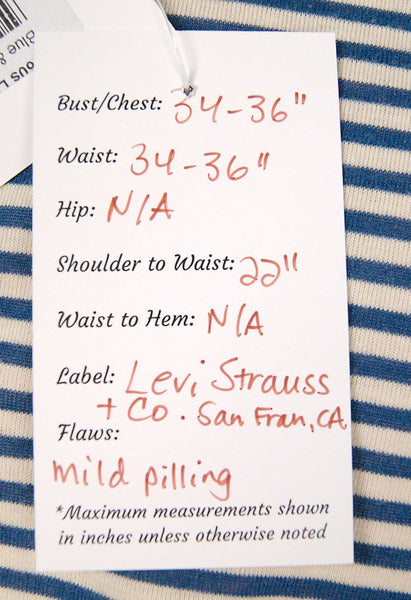 OUS L
Blue &
Bust/Chest: 34-36"
Waist: 34-36"
Hip: N/A
Shoulder to Waist: 22"
Waist to Hem: N/A
Label: Levi Strauss
+ Co. San Fran, CA
Flaws:
mild pilling
*Maximum measurements shown
in inches unless otherwise noted